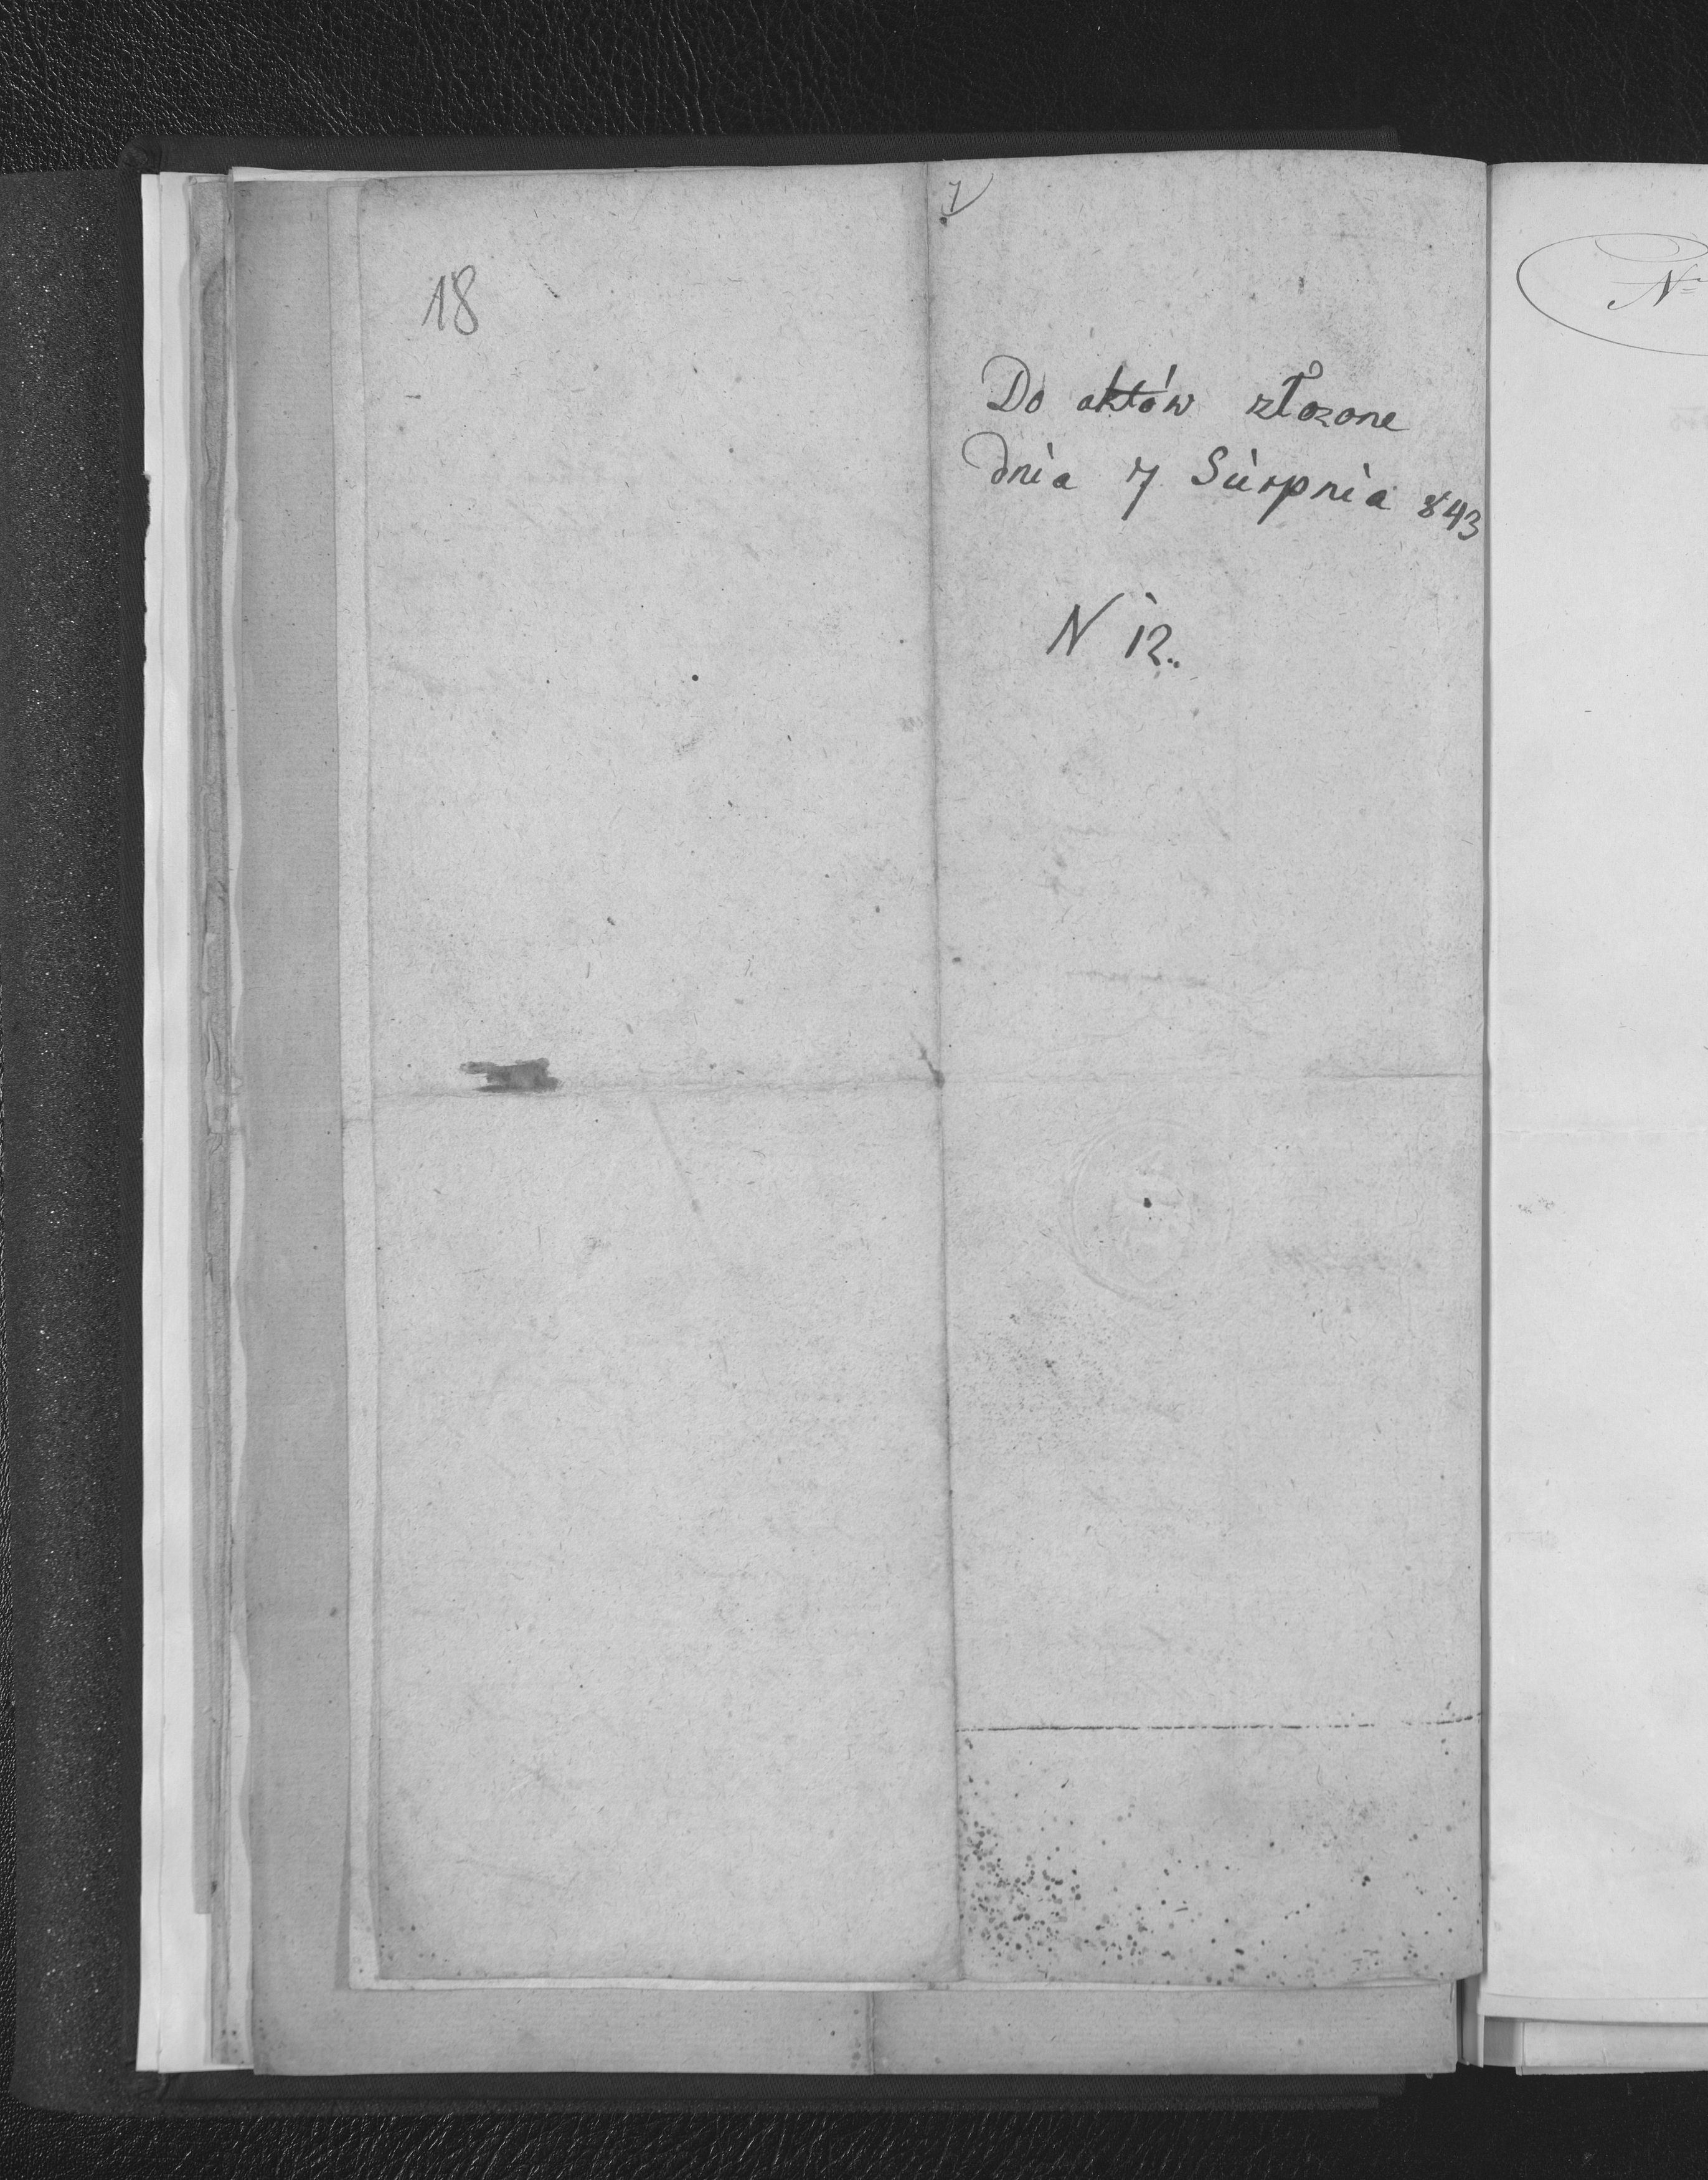 18
Do aktów złozone
dnia 7 Sierpnia 843
N 12..
Nr